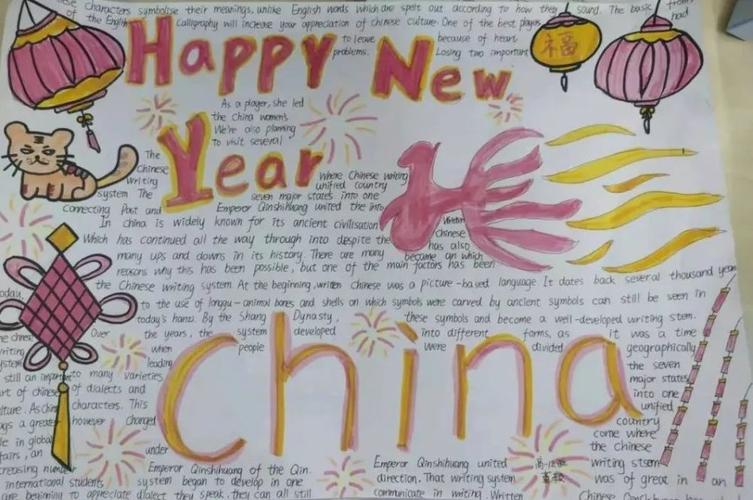 Characters symbolise their meanings, unlike English words which are spelt out according to how they sound. The basic
of the English Calligraphy will increase your appreciation of chinese culture One of the best players had
to leave because of heart
problems. Losing two important
福
Happy New
Year
As a player, she led
the China women's
We're also planning
to visit several
The Chinese
writing
system The
Where Chinese writing
unified country
seven major states into one
Connecting Past and Emperor Qinshihuang united the into
In china is widely known for its ancient civilisation
Which has continued all the way through into despite the
many ups and downs in its history. There are many
reasons why this has been possible, but one of the main factors has been
Written
Chinese
has also
become an which
the Chinese writing system At the beginning, written Chinese was a picture-based language It dates back several thousand year
today, to the use of longgu-animal bones and shells on which symbols were carved by ancient symbols can still be seen in
today's hanzi. By the Shang Dynasty, these symbols and become a well-developed writing stem.
Over the years, the system developed into different forms, as it was a time
when people were divided geographically
leading
china
still an important to many varieties
of chinese of dialects and
culture. As China characters. This
a greater however changed
in global
affairs, an under
increasing number Emperor Qinshihuang of the Qin.
international students system began to develop in one
are beginning to appreciate dialect they speak, they can all still
the seven
major states
into one
unified
country
come where
the Chinese
Emperor Qinshihuang united writing stsem
direction. That writing system was of great in an
communicate in writing. Written Chinese